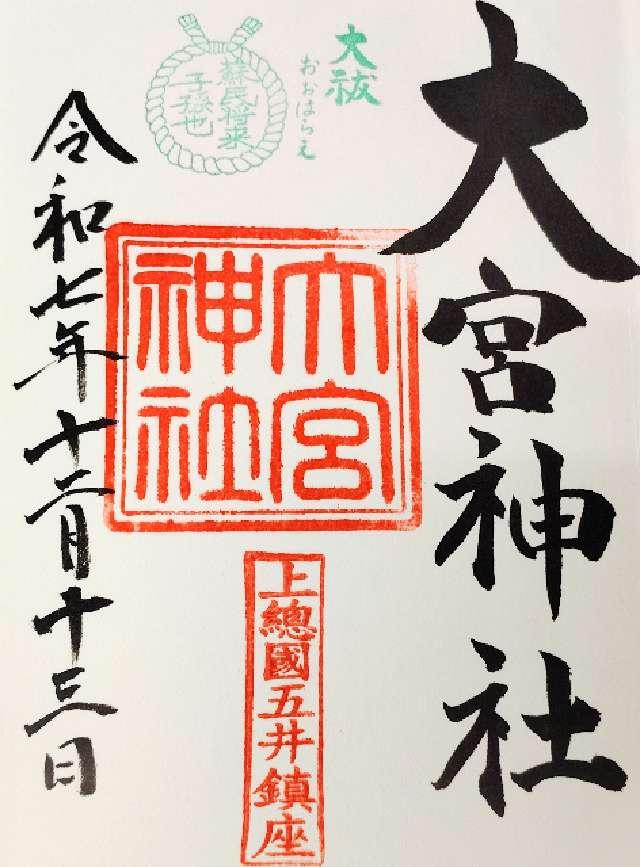 大宮神社
大祓
おおはらえ
蘇民将来
子孫也
大宮
神社
上總國五井鎮座
令和七年十二月十三日